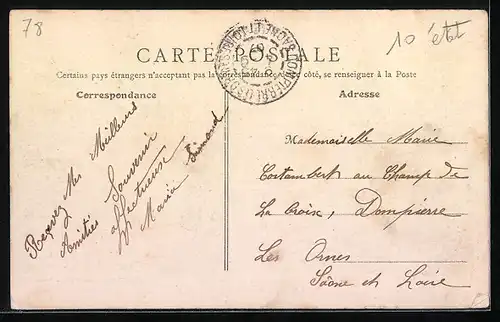 78
10 état
CARTE POSTALE
Certains pays étrangers n'acceptant pas la correspondance de ce côté, se renseigner à la Poste
Correspondance
Adresse
Recevez Mes Meilleurs
Amitiés Souvenir
affectueuse
Maria Simond
Mademoiselle Marie
Costambert au Champ de
La Croix, Dompierre
Les Ormes
Saône et Loire